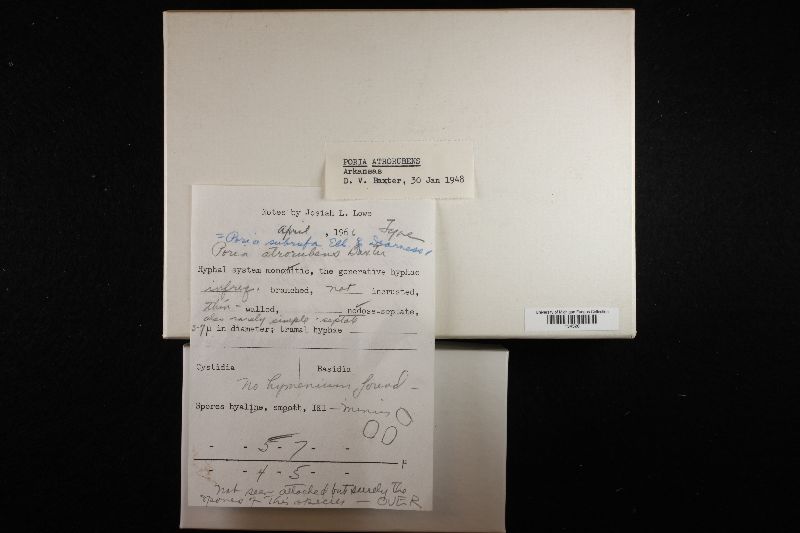 PORIA ATRORUBENS
Arkansas
D. V. Baxter, 30 Jan 1948
Notes by Josiah L. Lowe
April, 1966 Type
= Poria subrufa Ell & Dearness
Poria atrorubens Baxter
Hyphal system monomitic, the generative hyphae
infreq. branched, not incrusted,
thin-walled, nodose-septate,
also rarely simple-septate
3-7µ in diameter; tramal hyphae
Cystidia Basidia
No hymenium found -
Spores hyaline, smooth, IKI - minus
- - 5 - 7 - -
- - 4 - 5 - - µ
Not seen attached but surely the
spores of this species - OVER
University of Michigan Fungus Collection